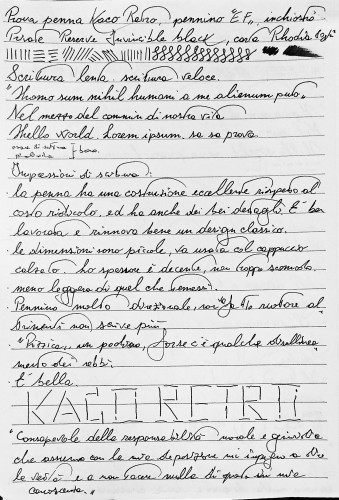 Prova penna Kaco Retro, pennino "EF", inchiostro
Pirate Reserve Invincible black, carta Rhodia
Scrittura lenta, scrittura veloce.
"Homo sum nihil humani a me alienum puto"
Nel mezzo del cammin di nostra vita
Hello world. Lorem ipsum. sa sa prova
Impressioni di scrittura:
· la penna ha una costruzione eccellente rispetto al
costo ridicolo, ed ha anche dei bei dettagli. È ben
lavorata e rinnova bene un design classico.
· le dimensioni sono piccole, va usata col cappuccio
calzato. Lo spessore è decente, non troppo scomoda
meno leggera di quel che pensassi.
· Pennino molto direzionale, ruotare al
trimenti non scrive più.
· "Pizzica" un pochino, forse c'è qualche disallinea
mento dei rebbi.
· È bella.
KACO RETRO
"Consapevole della responsabilità morale e giuridica
che assumo con la mia deposizione mi impegno a dire
la verità e a non tacere nulla di quanto sia mia
conoscenza."